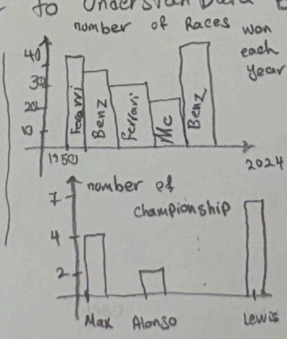 to Understan Data
number of Races won
each
year
40
30
20
10
Farrari
Benz
Ferrari
Mc
Benz
1950
2024
number of
championship
7
4
2
Max Alonso Lewis